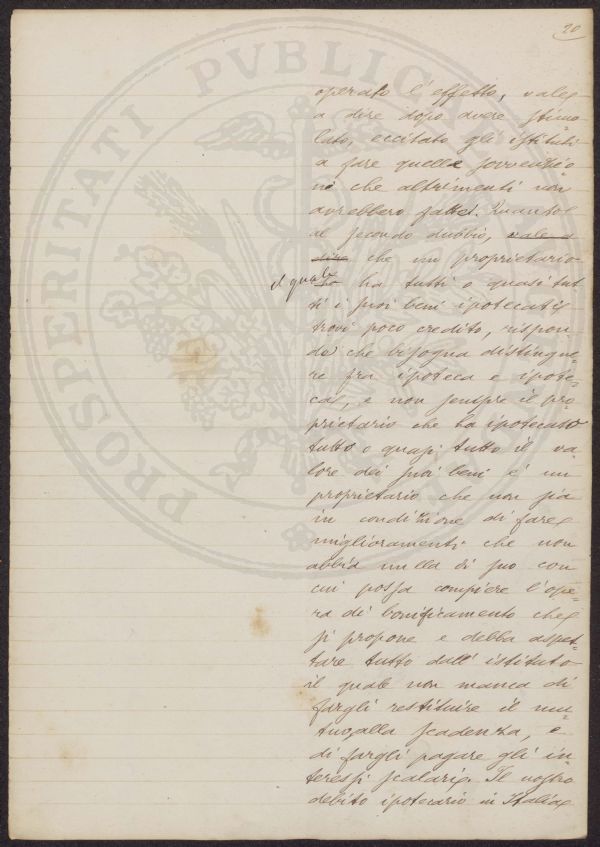 20
operato l'effetto, vale
a dire dopo avere stimo
lato, eccitato gli istituti
a fare quelle sovvenzio
ni che altrimenti non
avrebbero fatte. Quanto
al secondo dubbio, vale a
dire che un proprietario
il quale
ha tutti o quasi tut
ti i suoi beni ipotecati
trovi poco credito, rispon
do che bisogna distingue
re fra ipoteca e ipote-
ca, e non sempre il pro
prietario che ha ipotecato
tutto o quasi tutto il va
lore dei suoi beni è un
proprietario che non sia
in condizione di fare
miglioramenti che non
abbia nulla di suo con
cui possa compiere l'ope-
ra di bonificamento che
si propone e debba aspet-
tare tutto dall'istituto
il quale non manca di
fargli restituire il mu-
tuo, alla scadenza, e
di fargli pagare gli in
teressi scalari. Il nostro
debito ipotecario in Italia
PROSPERITATI PVBLICAE